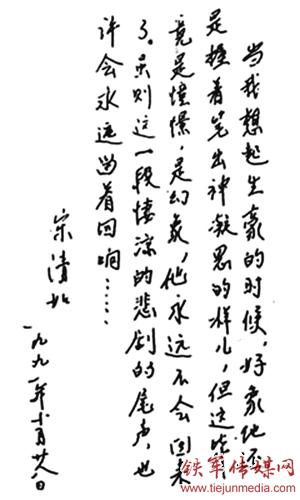 当我想起生豪的时候，好象他还
是握着笔出神凝思的样儿，但这毕
竟是憧憬，是幻象，他永远不会回来
了。否则这一段悽凉的悲剧的尾声，也
许会永远留着回响……
宋清如
一九九一年十月廿八日
铁军传媒网
www.tiejunmedia.com